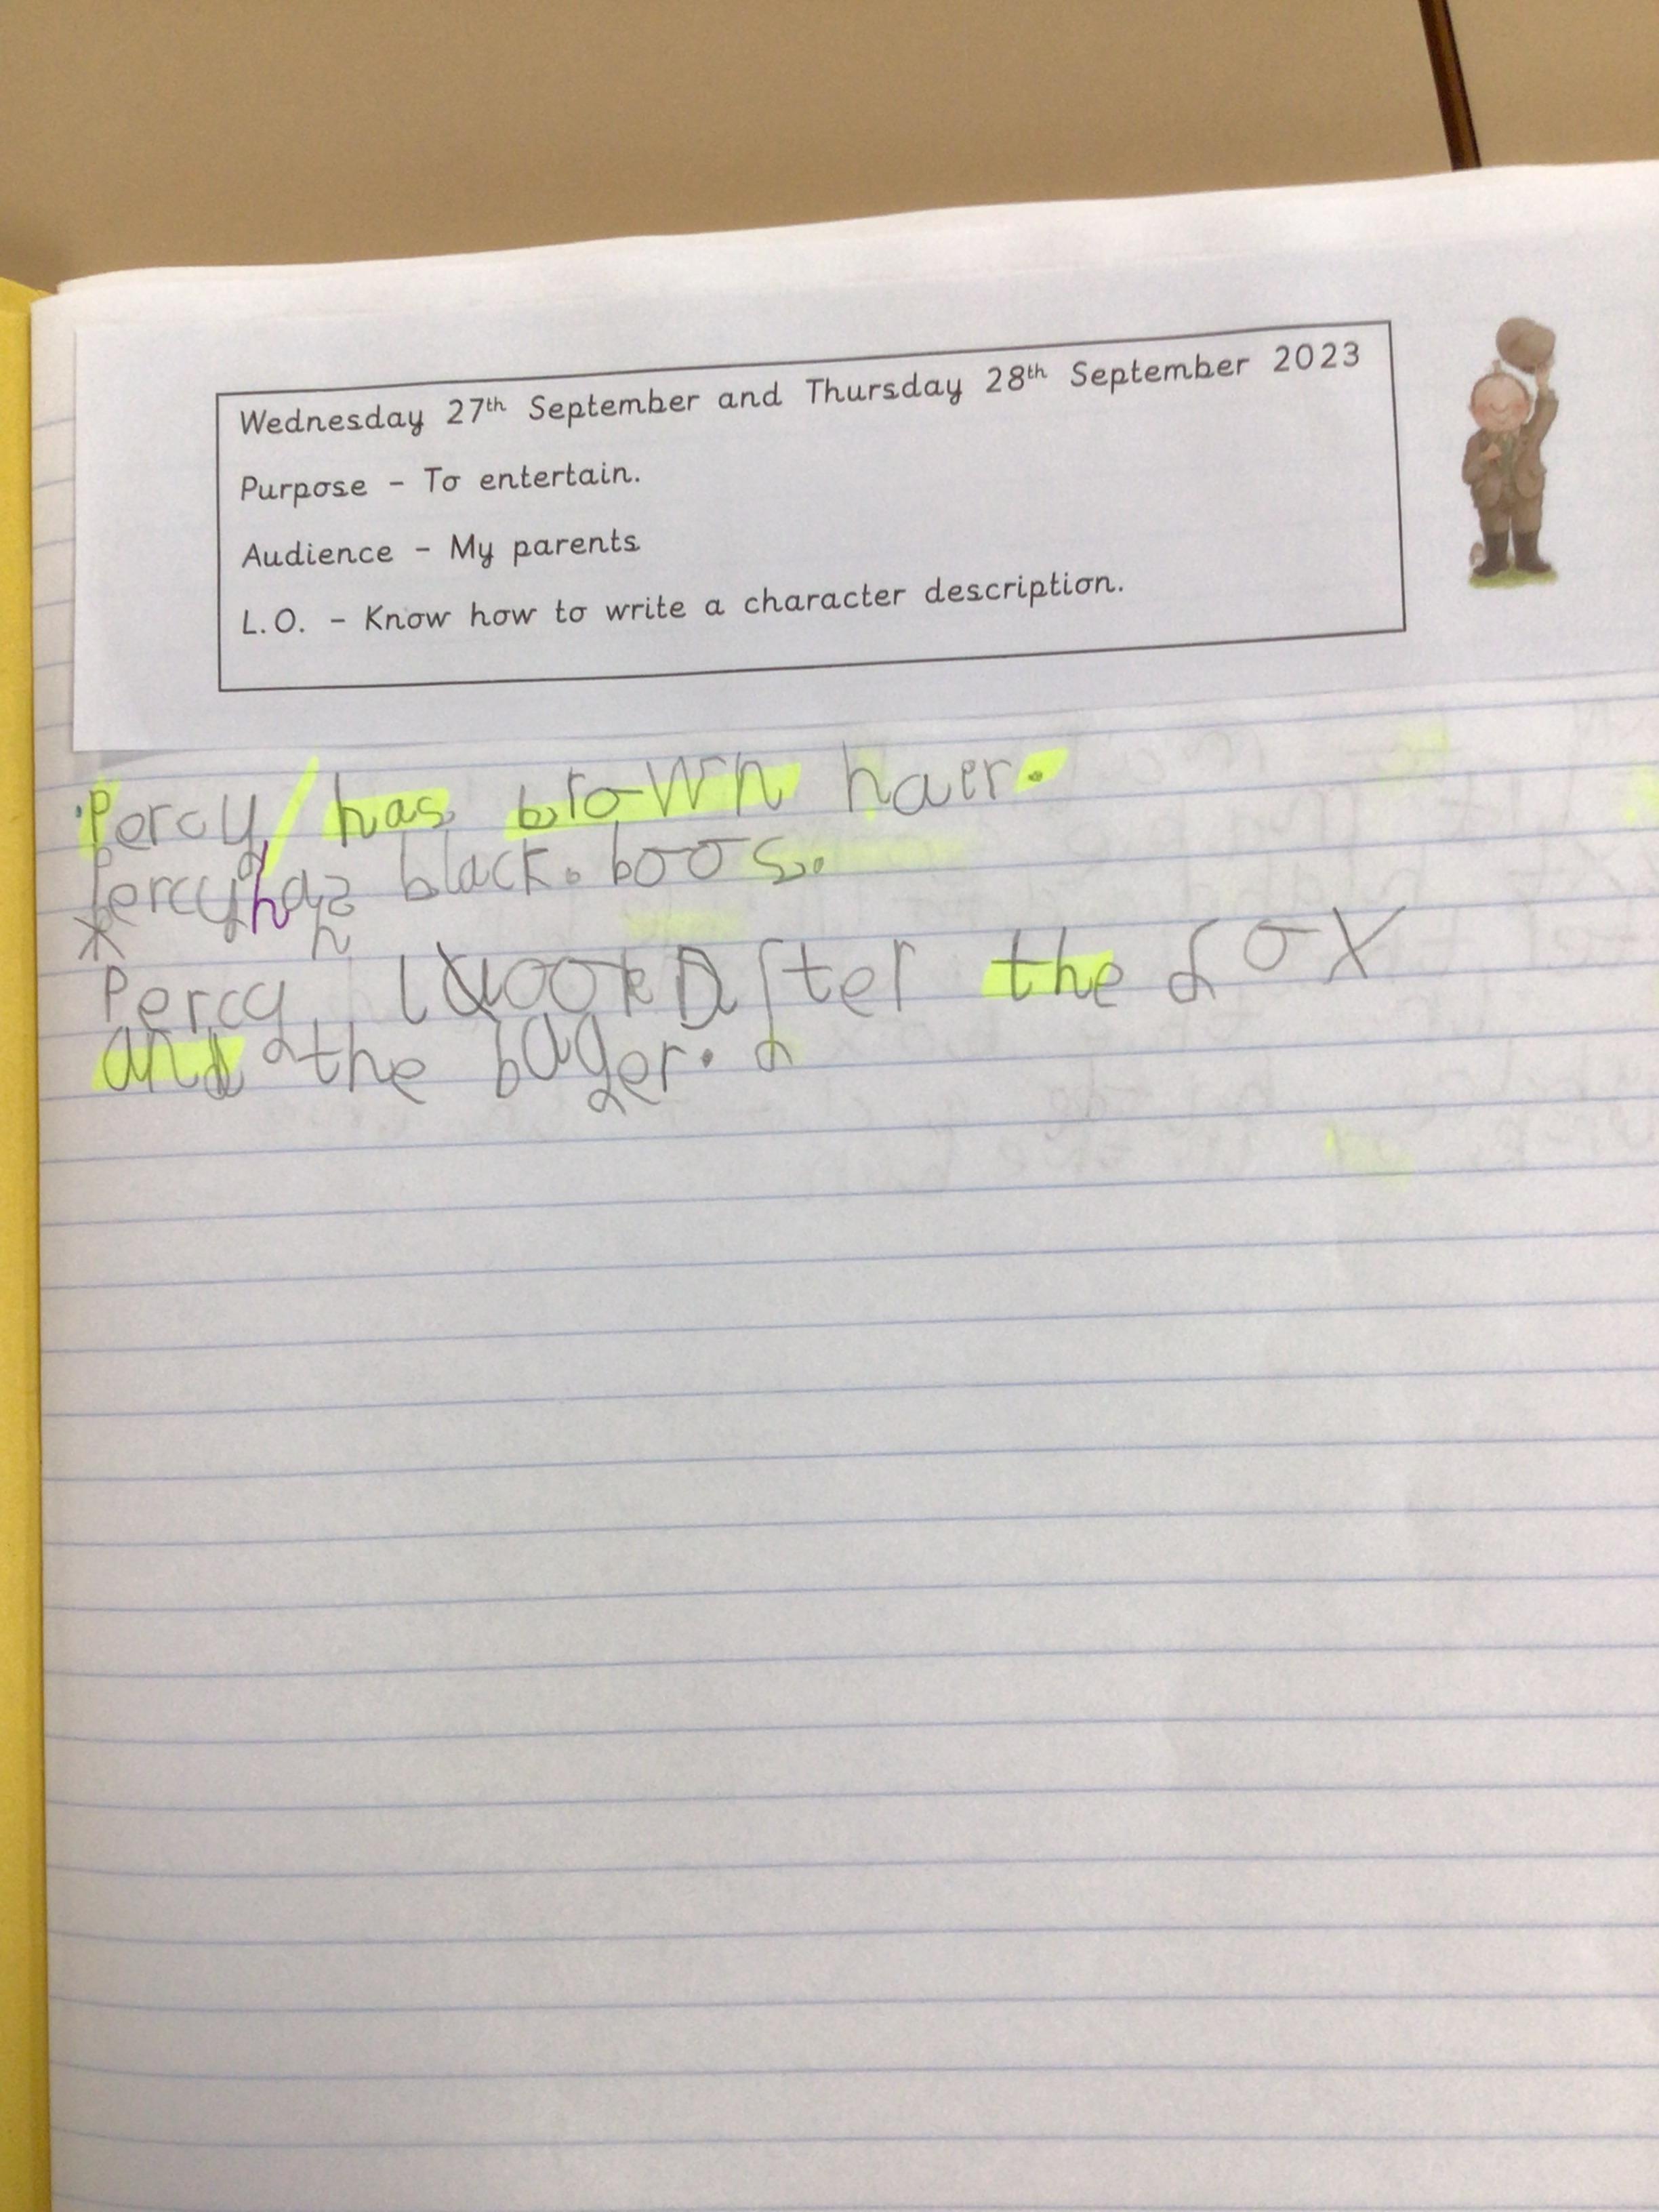 Wednesday 27th September and Thursday 28th September 2023
Purpose - To entertain.
Audience - My parents
L.O. - Know how to write a character description.
Percy has brown hair.
Percy has black. boos.
Percy look After the fox
and the bager.